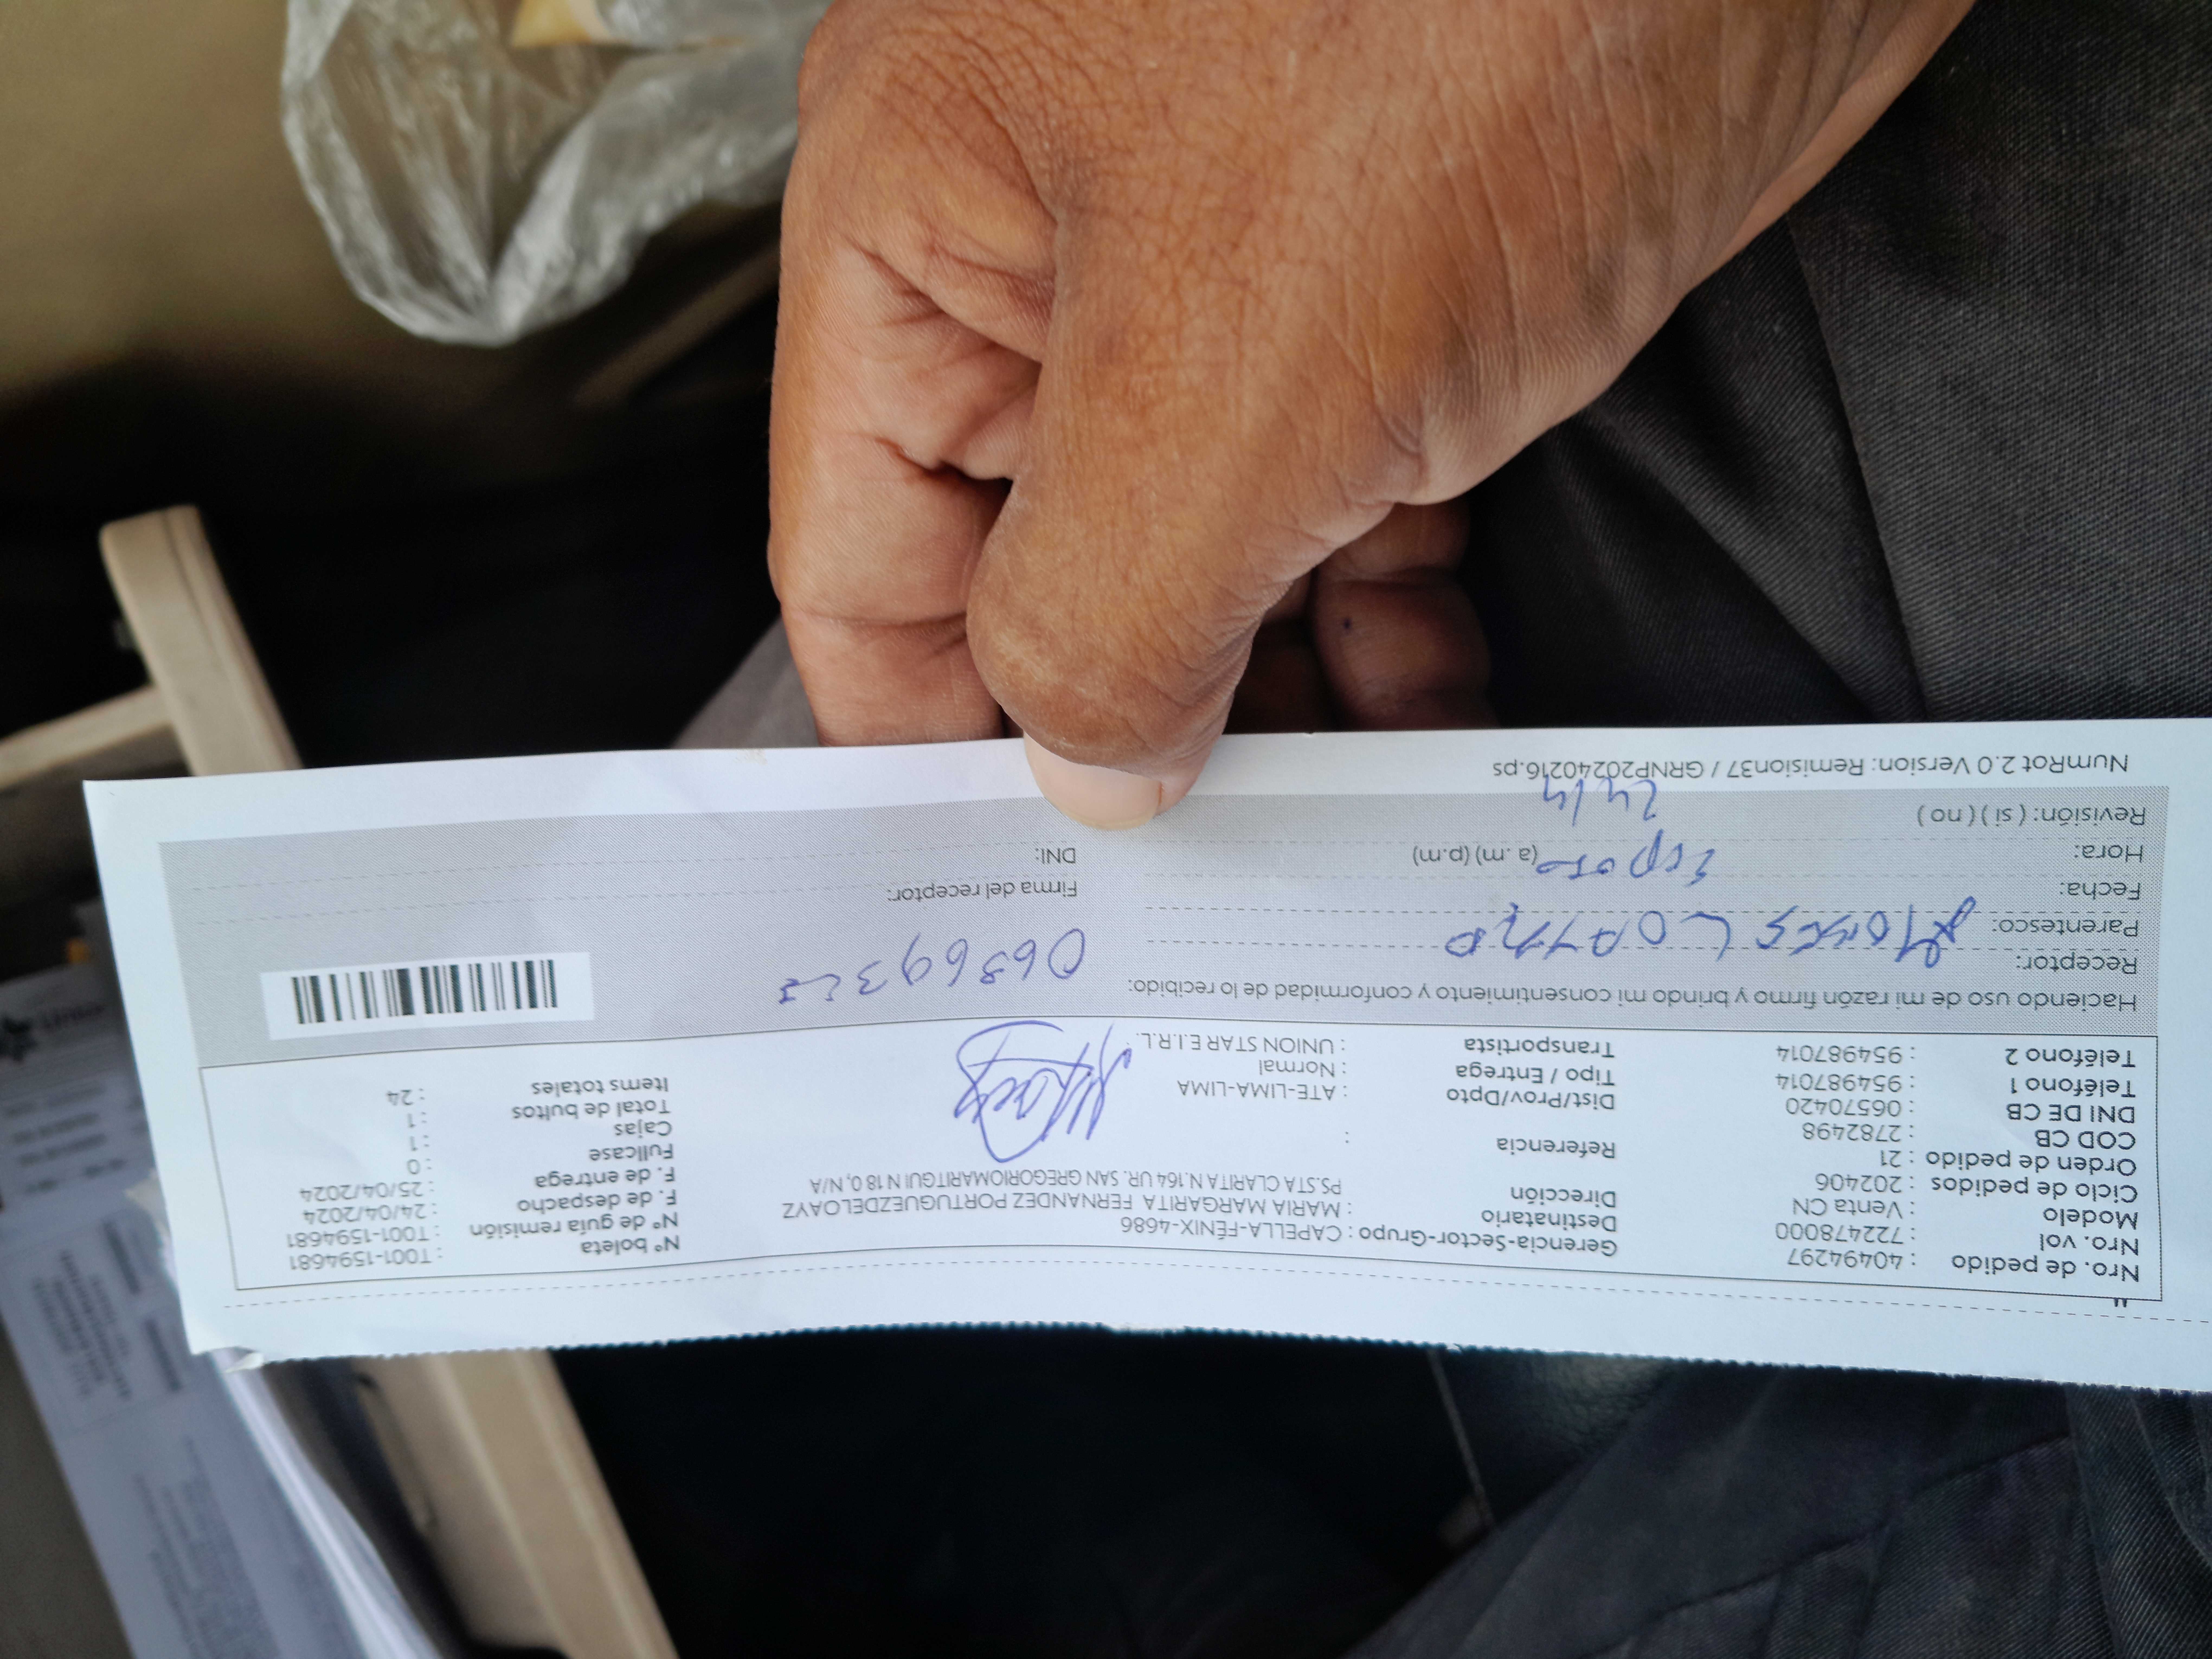 Nro. de pedido : 40494297
Nro. vol : 722478000
Modelo : Venta CN
Ciclo de pedidos : 202406
Orden de pedido : 21
COD CB : 2782498
DNI DE CB : 06570420
Teléfono 1 : 954987014
Teléfono 2 : 954987014
Gerencia-Sector-Grupo : CAPELLA-FÉNIX-4686
Destinatario : MARIA MARGARITA FERNANDEZ PORTUGUEZDELOAYZ
Dirección PS.STA CLARITA N.164 UR. SAN GREGORIOMARITGUI N 18 0, N/A
Referencia :
Dist/Prov/Dpto : ATE-LIMA-LIMA
Tipo / Entrega : Normal
Transportista : UNION STAR E.I.R.L.
Nº boleta : T001-1594681
Nº de guía remisión : T001-1594681
F. de despacho : 24/04/2024
F. de entrega : 25/04/2024
Fullcase : 0
Cajas : 1
Total de bultos : 1
Items totales : 24
Haciendo uso de mi razón firmo y brindo mi consentimiento y conformidad de lo recibido:
Receptor:
Parentesco:
Fecha: Esposo
Hora: (a. m) (p.m)
Revisión: ( si ) ( no ) 24/4
Firma del receptor:
DNI:
NumRot 2.0 Version: Remision37 / GRNP20240216.ps